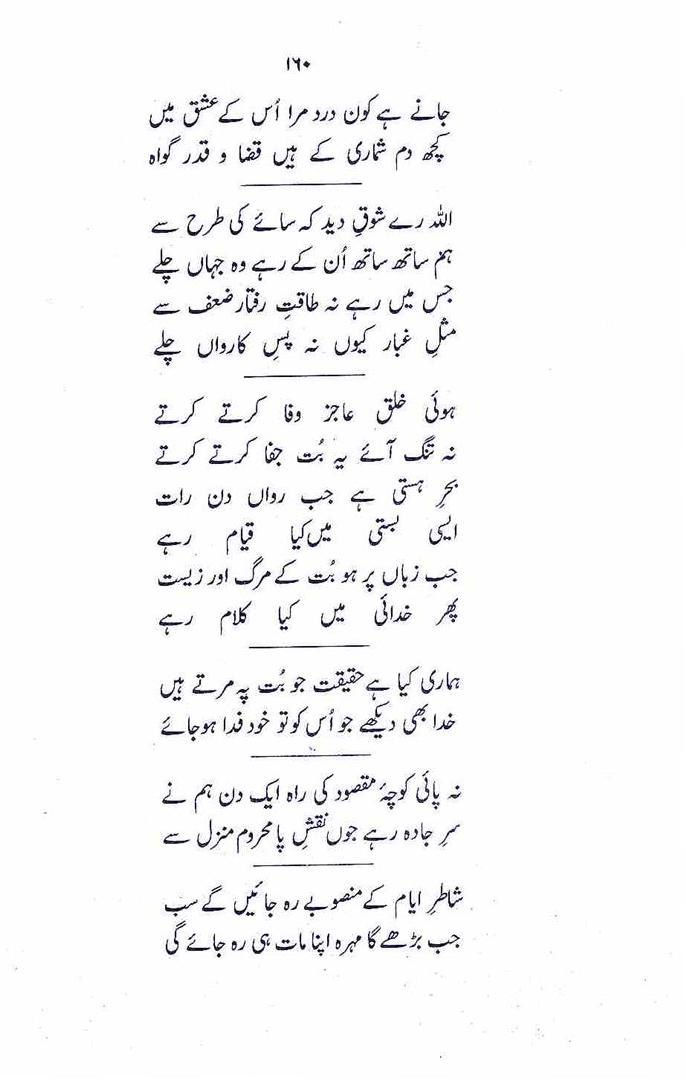 ۱۶۰
جانے ہے کون درد مرا اُس کے عشق میں
کچھ دم شماری کے ہیں قضا و قدر گواہ
اللہ رے شوقِ دید کہ سائے کی طرح سے
ہم ساتھ ساتھ اُن کے رہے وہ جہاں چلے
جس میں رہے نہ طاقتِ رفتار ضعف سے
مثلِ غبار کیوں نہ پسِ کارواں چلے
ہوئی خلق عاجز وفا کرتے کرتے
نہ تنگ آئے یہ بُت جفا کرتے کرتے
بحرِ ہستی ہے جب رواں دن رات
ایسی بستی میں کیا قیام رہے
جب زباں پر ہو بُت کے مرگ اور زیست
پھر خدائی میں کیا کلام رہے
ہماری کیا ہے حقیقت جو بُت پہ مرتے ہیں
خدا بھی دیکھے جو اُس کو تو خود فدا ہو جائے
نہ پائی کوچۂ مقصود کی راہ ایک دن ہم نے
سرِ جادہ رہے جوں نقشِ پا محروم منزل سے
شاطرِ ایام کے منصوبے رہ جائیں گے سب
جب بڑھے گا مہرہ اپنا مات ہی رہ جائے گی